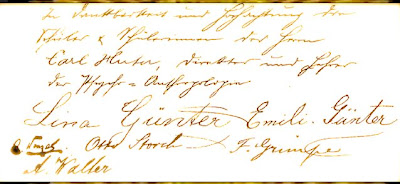 In Dankbarkeit und Hochachtung den
Schüler & Schülerinnen des Herrn
Carl Huter, Direktor und Lehrer
der Psycho-Anthropologie
Lina Günter Emili. Günter
Otto Storch F. Grimpe
A. Walter